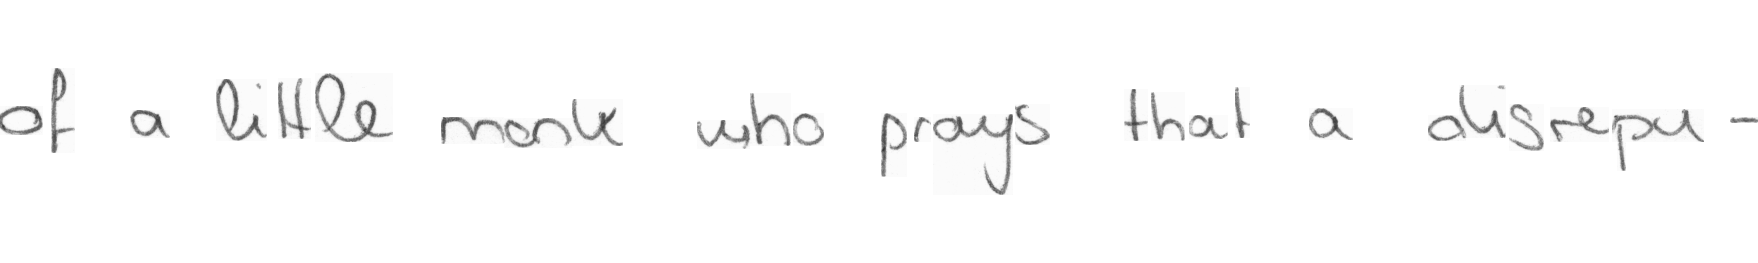 of a little monk who prays that a disrepu-